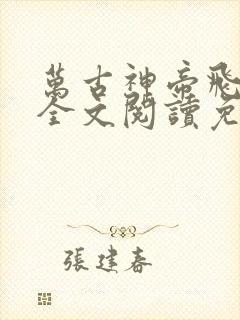 萬古神帝飛
全文閱讀免
張建春